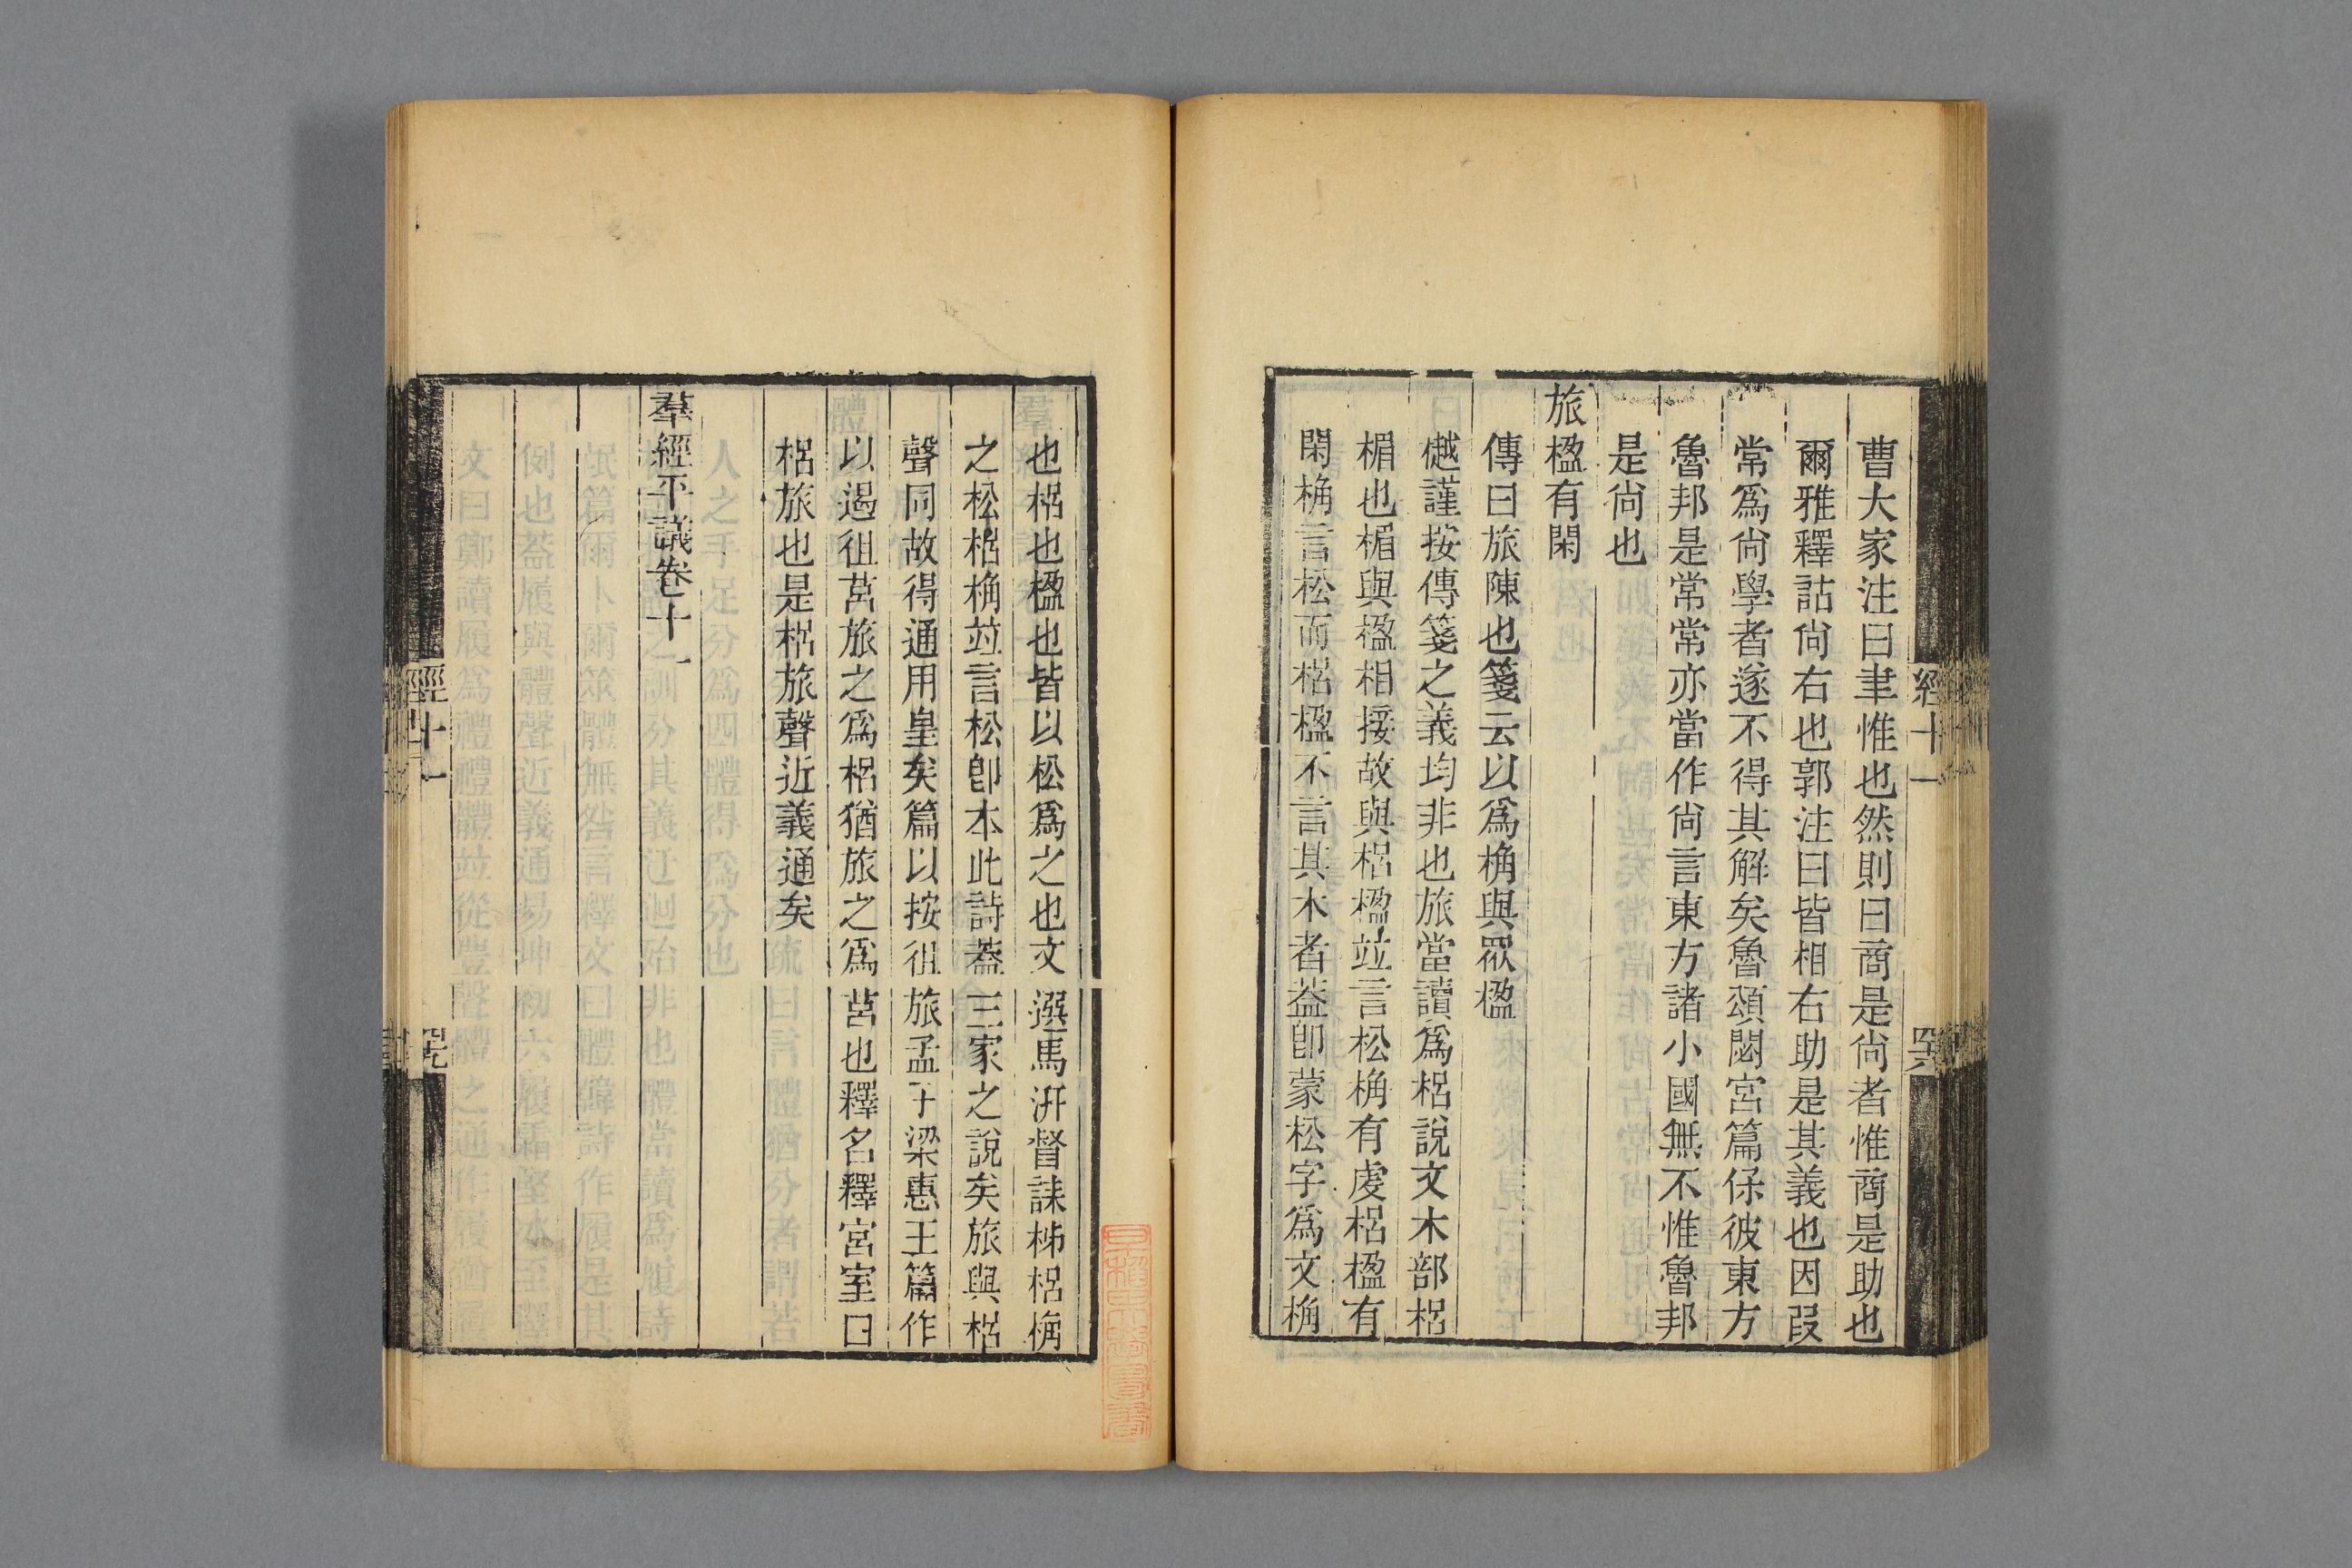 曹大家注曰聿惟也然則曰商是尙者惟商是助也
爾雅釋詁尙右也郭注曰皆相右助是其義也因叚
常爲尙學者遂不得其解矣魯頌閟宮篇保彼東方
魯邦是常常亦當作尙言東方諸小國無不惟魯邦
是尙也
旅楹有閑
傳曰旅陳也箋云以爲桷與眾楹
樾謹按傳箋之義均非也旅當讀爲梠說文木部梠
楣也楣與楹相接故與梠楹竝言松桷有虔梠楹有
閑桷言松而梠楹不言其木者葢卽蒙松字爲文桷
經十一
也梠也楹也皆以松爲之也文選馬汧督誄柹梠桷
之松梠桷竝言松卽本此詩葢三家之說矣旅與梠
聲同故得通用皇矣篇以按徂旅孟子梁惠王篇作
以遏徂莒旅之爲梠猶旅之爲莒也釋名釋宮室曰
梠旅也是梠旅聲近義通矣
羣經平議卷十一
經十一